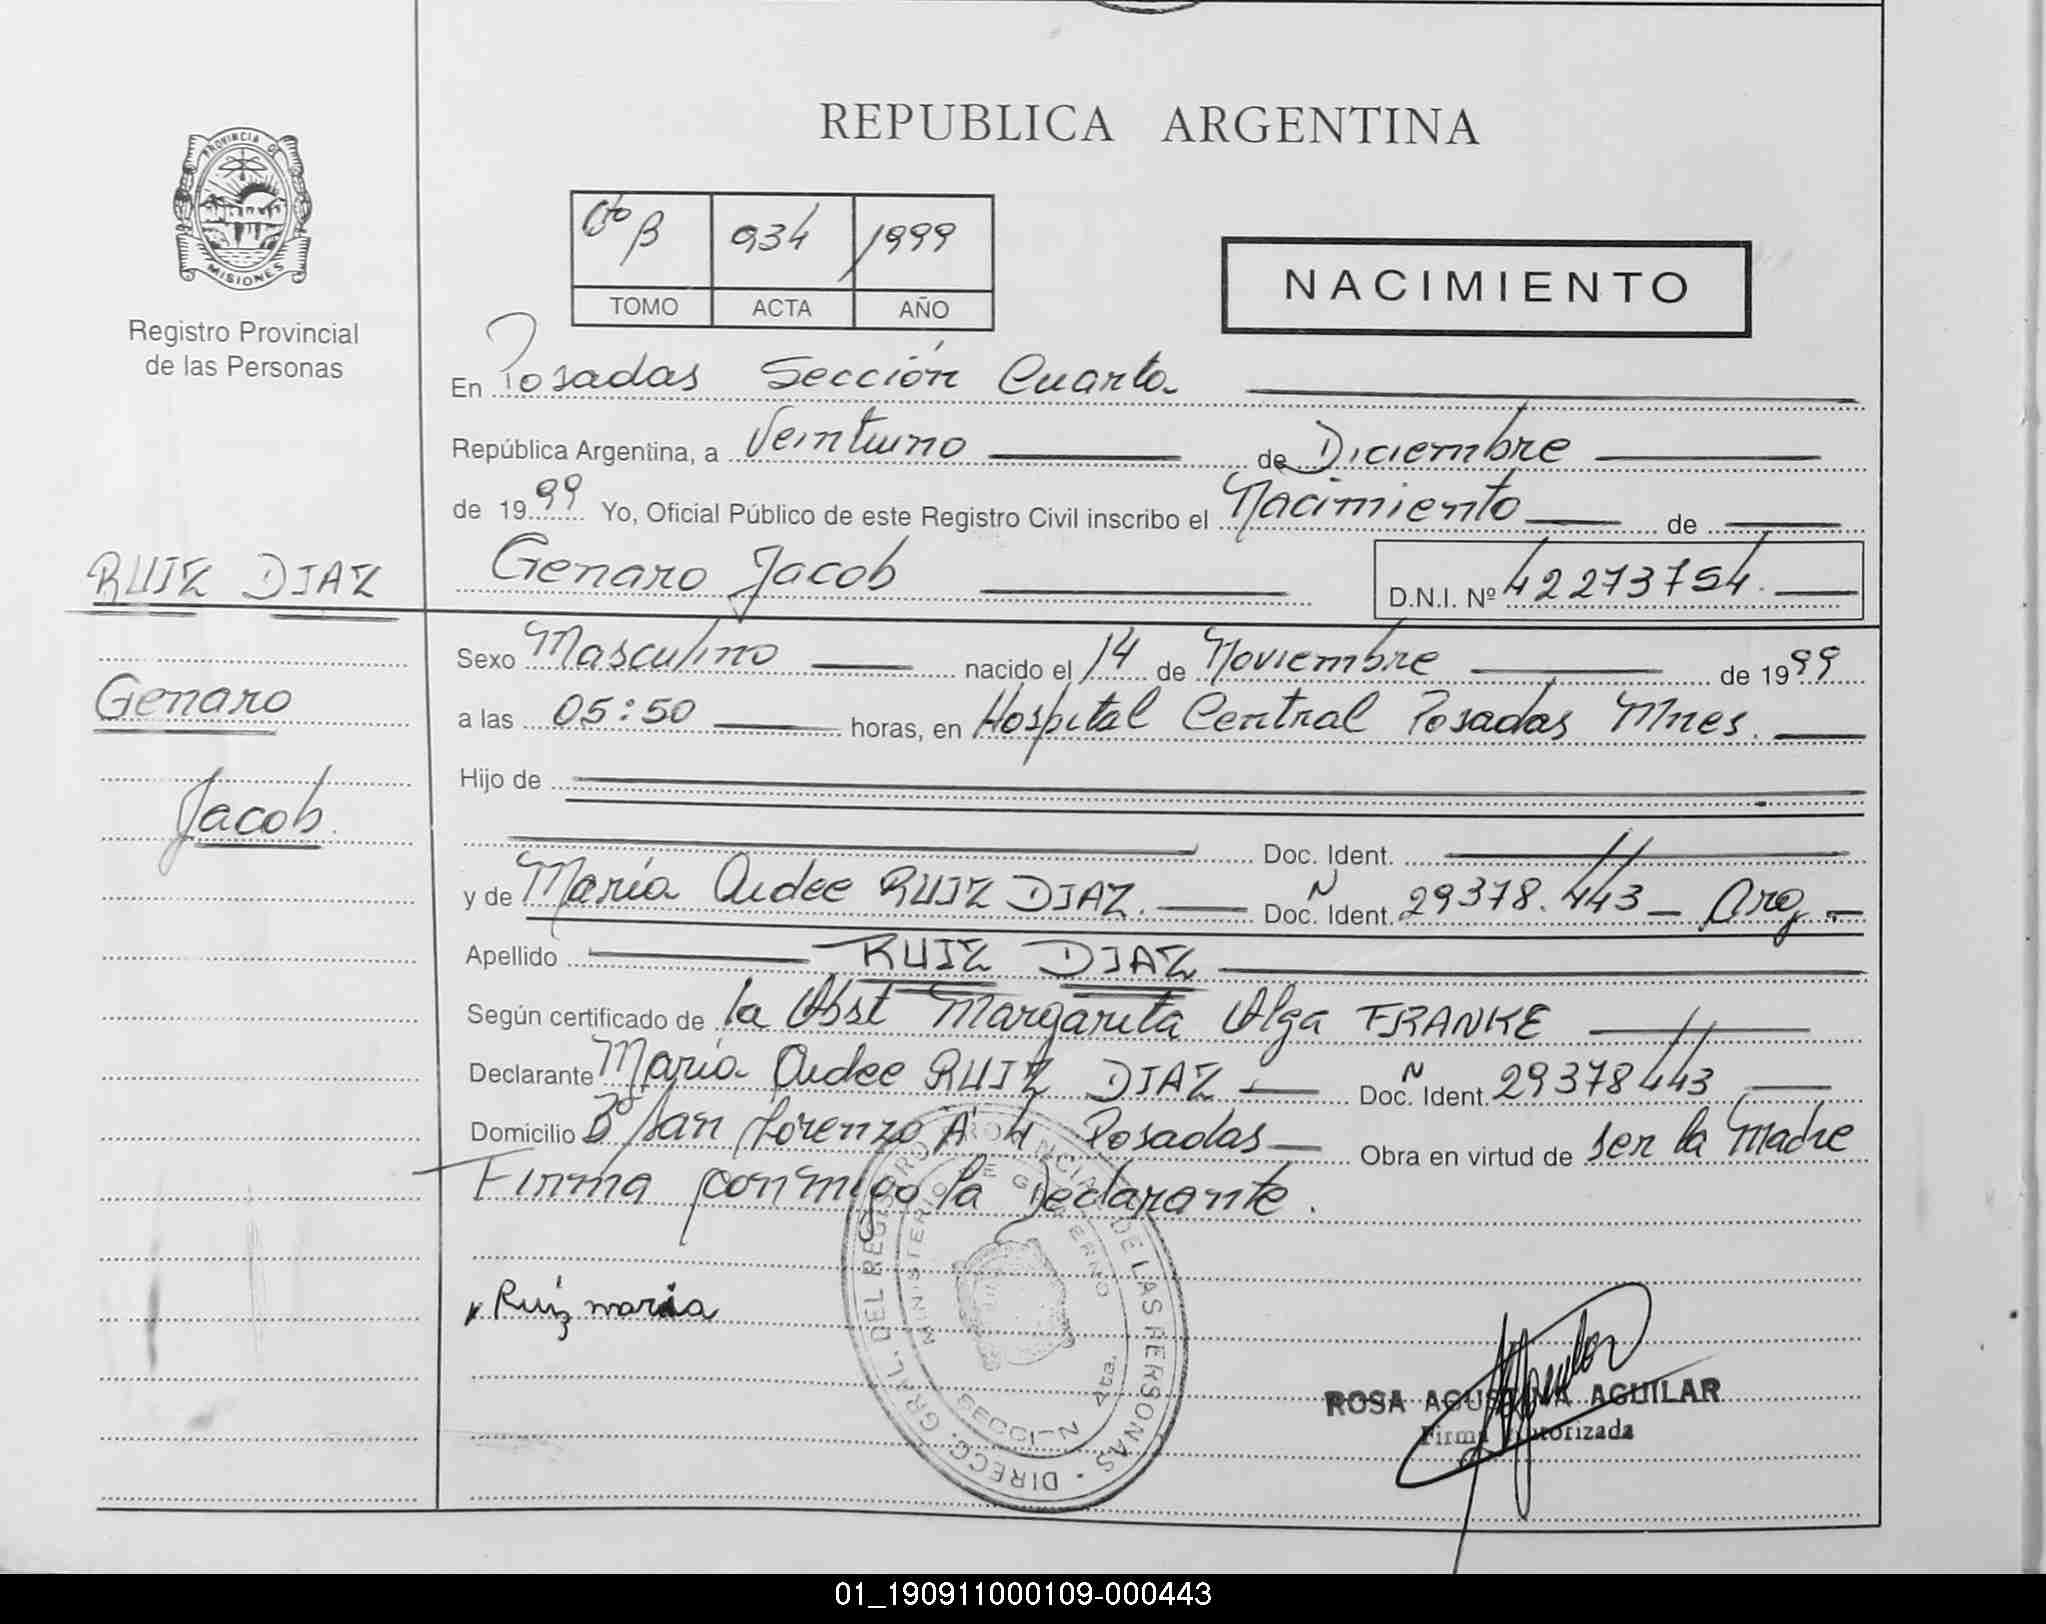 REPUBLICA ARGENTINA
PROVINCIA DE
MISIONES
Registro Provincial
de las Personas
6to B 934 1999
TOMO ACTA AÑO
NACIMIENTO
En Posadas Sección Cuarta
República Argentina, a Veintiuno de Diciembre
de 1999 Yo, Oficial Público de este Registro Civil inscribo el Nacimiento de
Genaro Jacob D.N.I. Nº 42273754.
RUIZ DIAZ
Genaro
Jacob.
Sexo Masculino nacido el 14 de Noviembre de 1999
a las 05:50 horas, en Hospital Central Posadas Mnes.
Hijo de
Doc. Ident.
y de María Aidee RUIZ DIAZ. Doc. Ident. Ñ 29378.443 Arg.
Apellido RUIZ DIAZ
Según certificado de la Obst Margarita Olga FRANKE
Declarante María Aidee RUIZ DIAZ Doc. Ident. Ñ 29378443
Domicilio Bº San Lorenzo A 4 Posadas Obra en virtud de ser la Madre
Firma conmigo la Declarante.
Ruiz maria
DIRECC. GRAL. DEL REGISTRO PROVINCIAL DE LAS PERSONAS
MINISTERIO DE GOBIERNO
SECCION 4ta.
ROSA AGUSTINA AGUILAR
Firma Autorizada
01_190911000109-000443